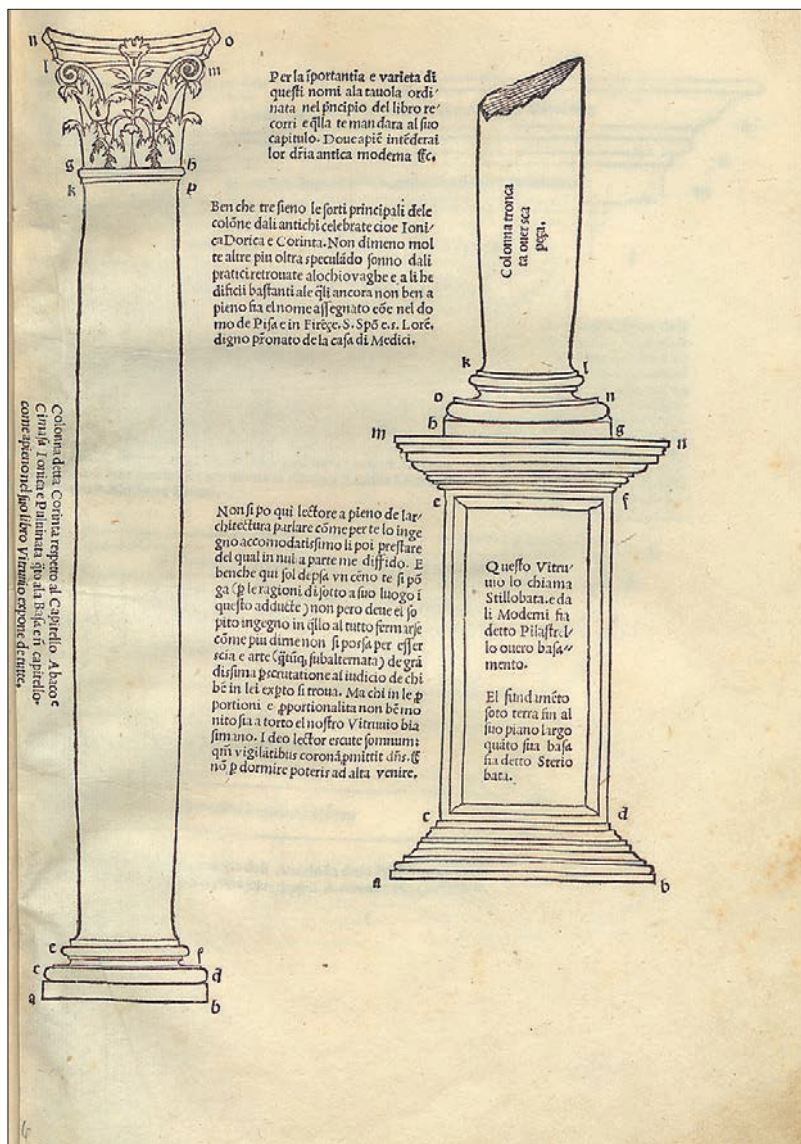 n o
l m
g h
k p
Per la īportantia e varieta di
questi nomi ala tauola ordi-
nata nel p̄ncipio del libro re-
corri e q̄lla te mandara al suo
capitulo. Doue apiē intēderai
lor dr̄ia antica moderna ⁊c.
Ben che tre sieno le sorti principali dele
colōne dali antichi celebrate cioe Ioni-
ca Dorica e Corinta. Non dimeno mol
te altre piu oltra speculādo sonno dali
pratici retrouate alochio vaghe e a li he
dificii bastanti ale q̄li ancora non ben a
pieno sia el nome assegnato cōe nel do
mo de Pisa e in Firēçe. S. Spō e. s. Lorē.
digno pr̄onato de la casa di Medici.
Colonna detta Corinta repetto al Capitello Abaco e
Cimasa Ionica e Puluinata q̄to ala Basa e nō capitello.
come apieno nel suo libro Vitruuio expone de tutte.
Non si po qui lectore a pieno de lar-
chitectura parlare cōme per te lo inge
gno accomodatissimo li poi prestare
del qual in nulla parte me diffido. E
benche qui sol depsa vn cēno te si pō
ga (ꝑ le ragioni di sotto a suo luogo ī
questo adducte) non pero deue el so
pito ingegno in q̄llo al tutto fermarse
cōme piu dime non si possa per esser
scia e arte (q̄tūq̨ subalternata) de grā
dissima ꝑscrutatione al iudicio de chi
bē in lei exꝑto si troua. Ma chi in le ꝓ
portioni e ꝓportionalita non bē mo
nito sia a torto el nostro Vitruuio bia
simano. Ideo lector excute somnum:
qm̄ vigilātibus coronā ꝓmittit dn̄s. ⁊
nō ꝑ dormire poteris ad alta venire.
e f
c d
a b
Colonna tronca
ta ouer sca
peça.
k l
o n
h g
m n
e f
Questo Vitru-
uio lo chiama
Stillobata. e da
li Moderni sia
detto Pilastrel-
lo ouero basa-
mento.
El fundamēto
soto terra fin al
suo piano largo
quāto sua basa
sia detto Sterio
bata.
c d
a b
6